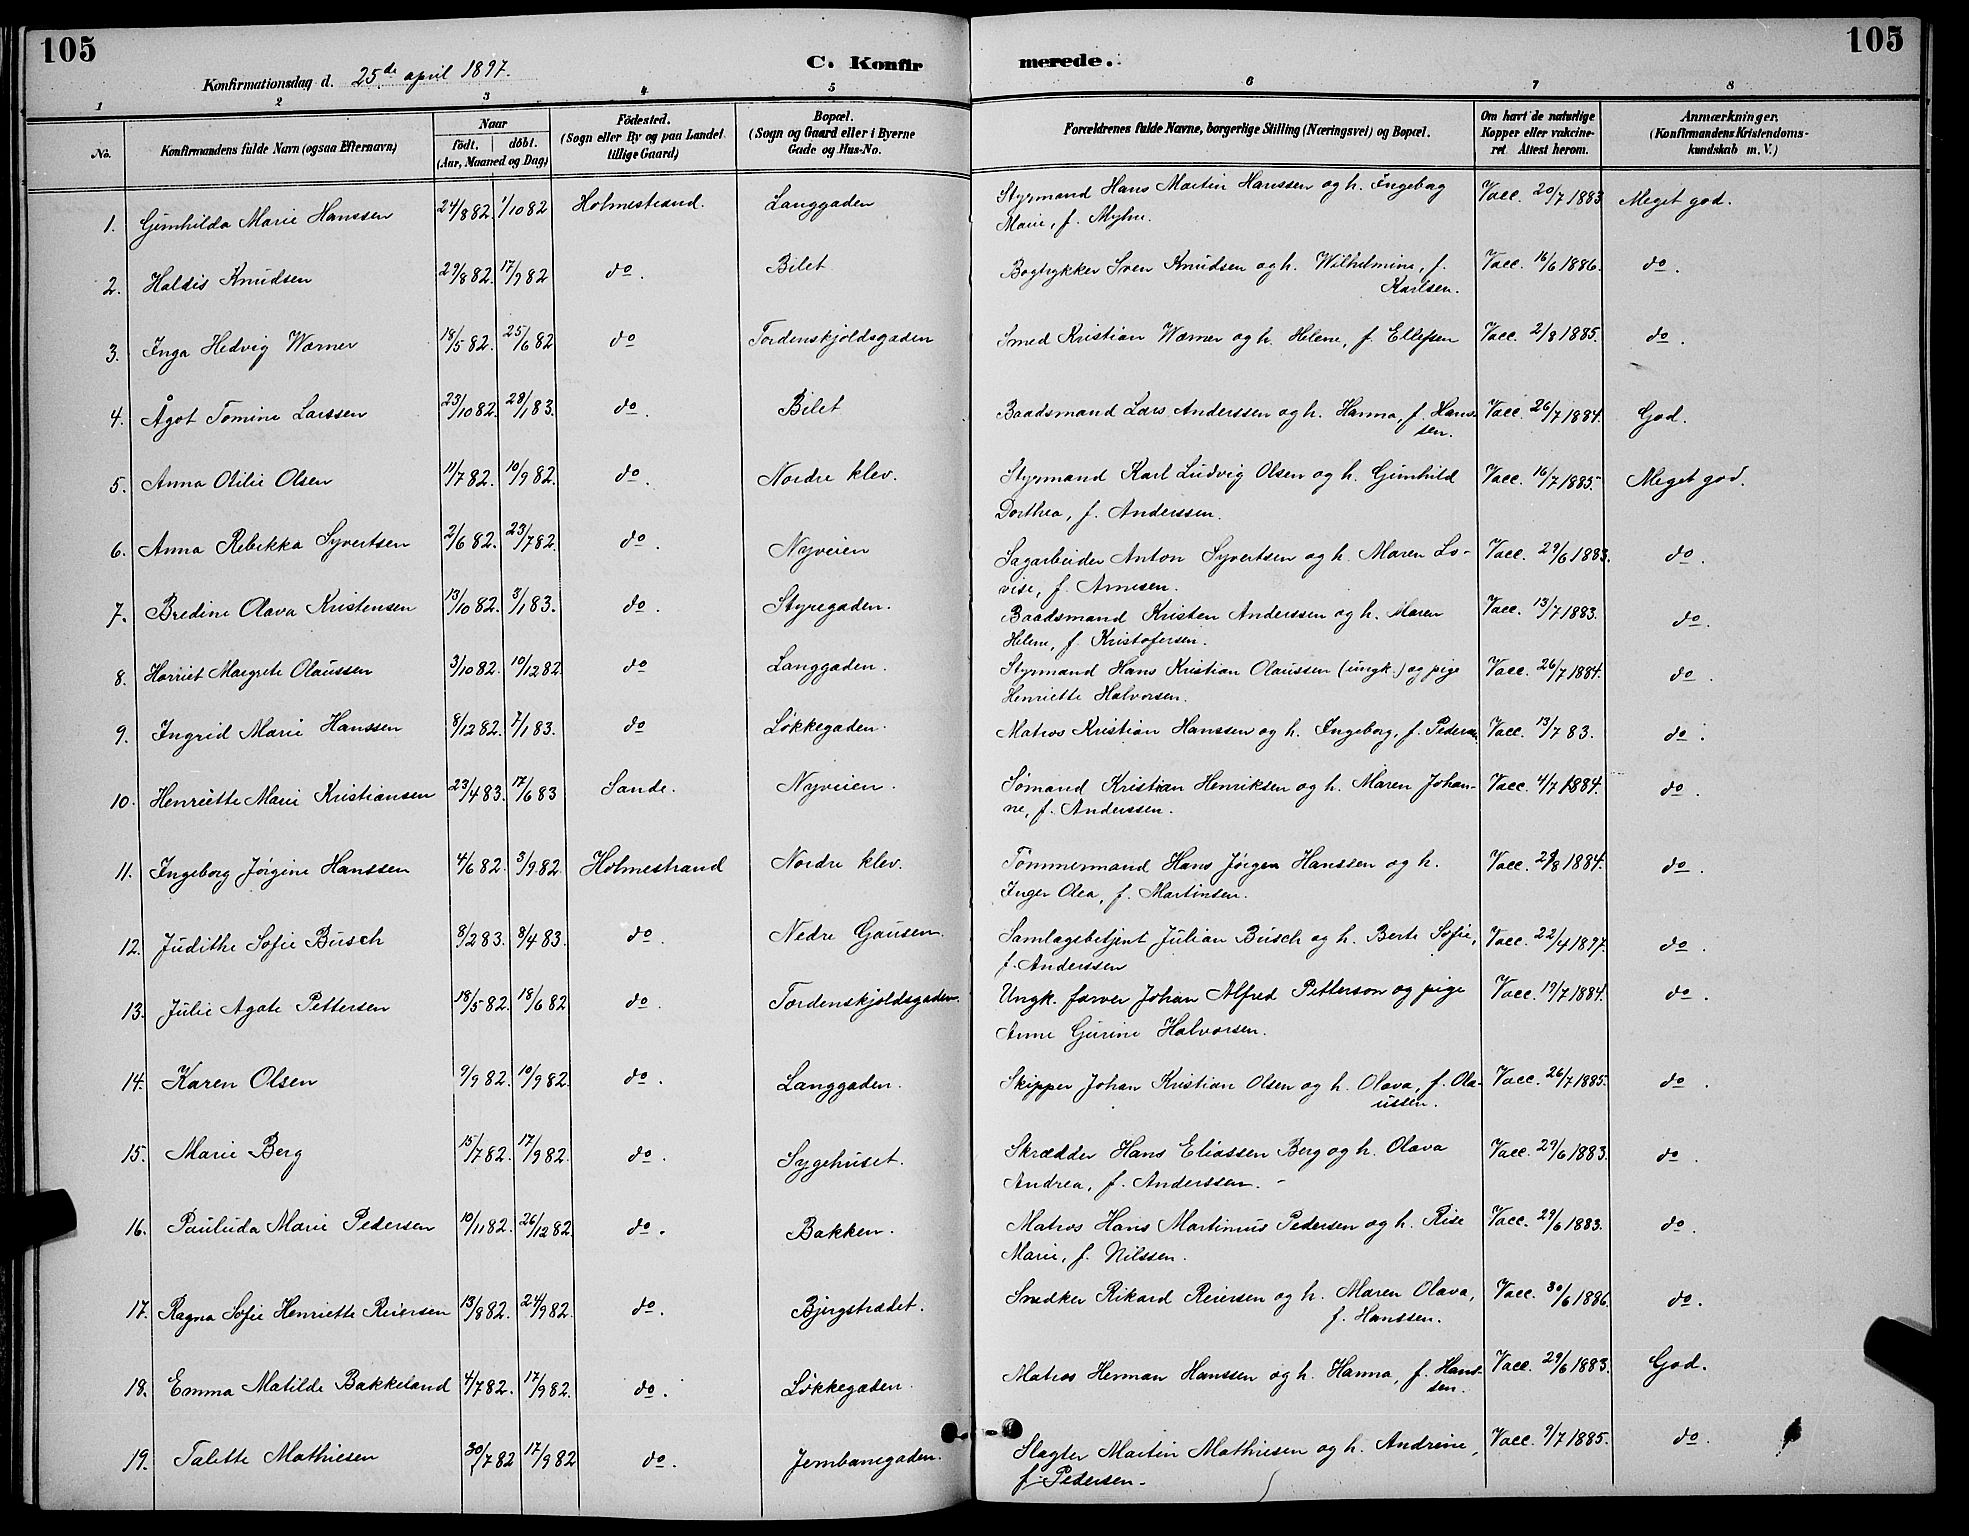 105
105
Konfirmationsdag d. 25de april 1897.
C. Konfir
merede.
1 2 3 4 5 6 7 8
No.
Konfirmandens fulde Navn (ogsaa Efternavn)
Naar
født. | døbt.
(Aar, Maaned og Dag)
Fødested.
(Sogn eller By og paa Landet
tillige Gaard)
Bopæl.
(Sogn og Gaard eller i Byerne
Gade og Hus-No.
Forældrenes fulde Navne, borgerlige Stilling (Næringsvei) og Bopæl.
Om havt de naturlige
Kopper eller vakcine-
ret. Attest herom.
Anmærkninger.
(Konfirmandens Kristendoms-
kundskab m. V.)
1. Gunhilda Marie Hanssen 24/8 82. 1/10 82 Holmestrand. Langgaden Styrmand Hans Martin Hanssen og h. Ingebog Vacc. 20/7 1883 Meget god.
Marie, f. Myhre.
2. Haldis Knudsen 29/8 82. 17/9 82 do. Bilet Bogtykker Sven Knudsen og h. Wilhelmine, f. Vacc. 16/6 1886. do.
Karlsen.
3. Inga Hedvig Wærner 18/5 82. 25/6 82 do Tordenskjoldsgaden Smed Kristian Wærner og h. Helene, f. Ellefsen Vacc. 2/8 1885. do.
4. Ågot Tomine Larssen 23/10 82. 28/1 83. do. Bilet Baadsmand Lars Anderssen og h. Hanna, f. Hans- Vacc. 26/7 1884. God.
sen.
5. Anna Otilie Olsen 11/7 82. 10/9 82. do. Nordre klev. Styrmand Karl Ludvig Olsen og h. Gunhild Vacc. 16/7 1885. Meget god.
Dorthea, f. Anderssen.
6. Anna Rebekka Syvertsen 2/6 82. 23/7 82. do. Nyveien Sagarbeider Anton Syvertsen og h. Maren Lo- Vacc. 29/6 1883. do.
vise, f. Arnesen.
7. Bredine Olava Kristensen 13/10 82. 3/1 83. do. Styregaden. Baadsmand Kristen Anderssen og h. Maren Vacc. 13/7 1883. do.
Helene, f. Kristofersen.
8. Harriet Margrete Olaussen 3/10 82. 10/12 82. do Langgaden. Styrmand Hans Kristian Olaussen (ungk.) og pige Vacc. 26/7 1884. do.
Henriette Halvorsen.
9. Ingrid Marie Hanssen 8/12 82. 7/1 83. do Løkkegaden. Matros Kristian Hanssen og h. Ingeborg, f. Pedersen Vacc. 13/7 83. do.
10. Henriette Marie Kristiansen 23/4 83. 17/6 83 Sande. Nyveien. Sømand Kristian Henriksen og h. Maren Johan- Vacc. 4/7 1884. do.
ne, f. Anderssen.
11. Ingeborg Jørgine Hanssen 4/6 82. 3/9 82. Holmestrand Nordre klev. Tømmermand Hans Jørgen Hanssen og h. Vacc. 1884. do.
Inger Olea, f. Martinsen.
12. Judithe Sofie Busch 8/2 83. 8/4 83. do. Nedre Gausen. Samlagsbetjent Julian Busch og h. Berte Sofie, Vacc. 22/4 1897. do.
f. Anderssen
13. Julie Agate Pettersen 18/5 82. 18/6 82 do. Tordenskjoldsgaden. Ungk. farver Johan Alfred Petterson og pige Vacc. 19/7 1884. do.
Anne Gurine Halvorsen.
14. Karen Olsen 9/9 82. 10/9 82. do. Langgaden. Skipper Johan Kristian Olsen og h. Olava, f. Ola- Vacc. 26/7 1885. do.
ussen.
15. Marie Berg 15/7 82. 17/9 82. do. Sygehuset. Skrædder Hans Eliassen Berg og h. Olava Vacc. 29/6 1883. do.
Andrea, f. Anderssen.
16. Pauluda Marie Pedersen 10/11 82. 26/12 82. do. Bakken. Matros Hans Martinius Pedersen og h. Rise Vacc. 29/6 1883. do.
Marie, f. Nilssen.
17. Ragna Sofie Henriette Reiersen 13/8 82. 24/9 82. do. Bjergstrædet. Snedker Rikard Reiersen og h. Maren Olava, Vacc. 30/6 1886. do.
f. Hanssen.
18. Emma Matilde Bakkeland 4/7 82. 17/9 82. do. Løkkegaden. Matros Herman Hanssen og h. Hanna, f. Hans- Vacc. 29/6 1883. God.
sen.
19. Talette Mathiesen 30/7 82 17/9 82 do. Jernbanegaden. Slagter Martin Mathiesen og h. Andrine, Vacc. 9/7 1885. do.
f. Pedersen.